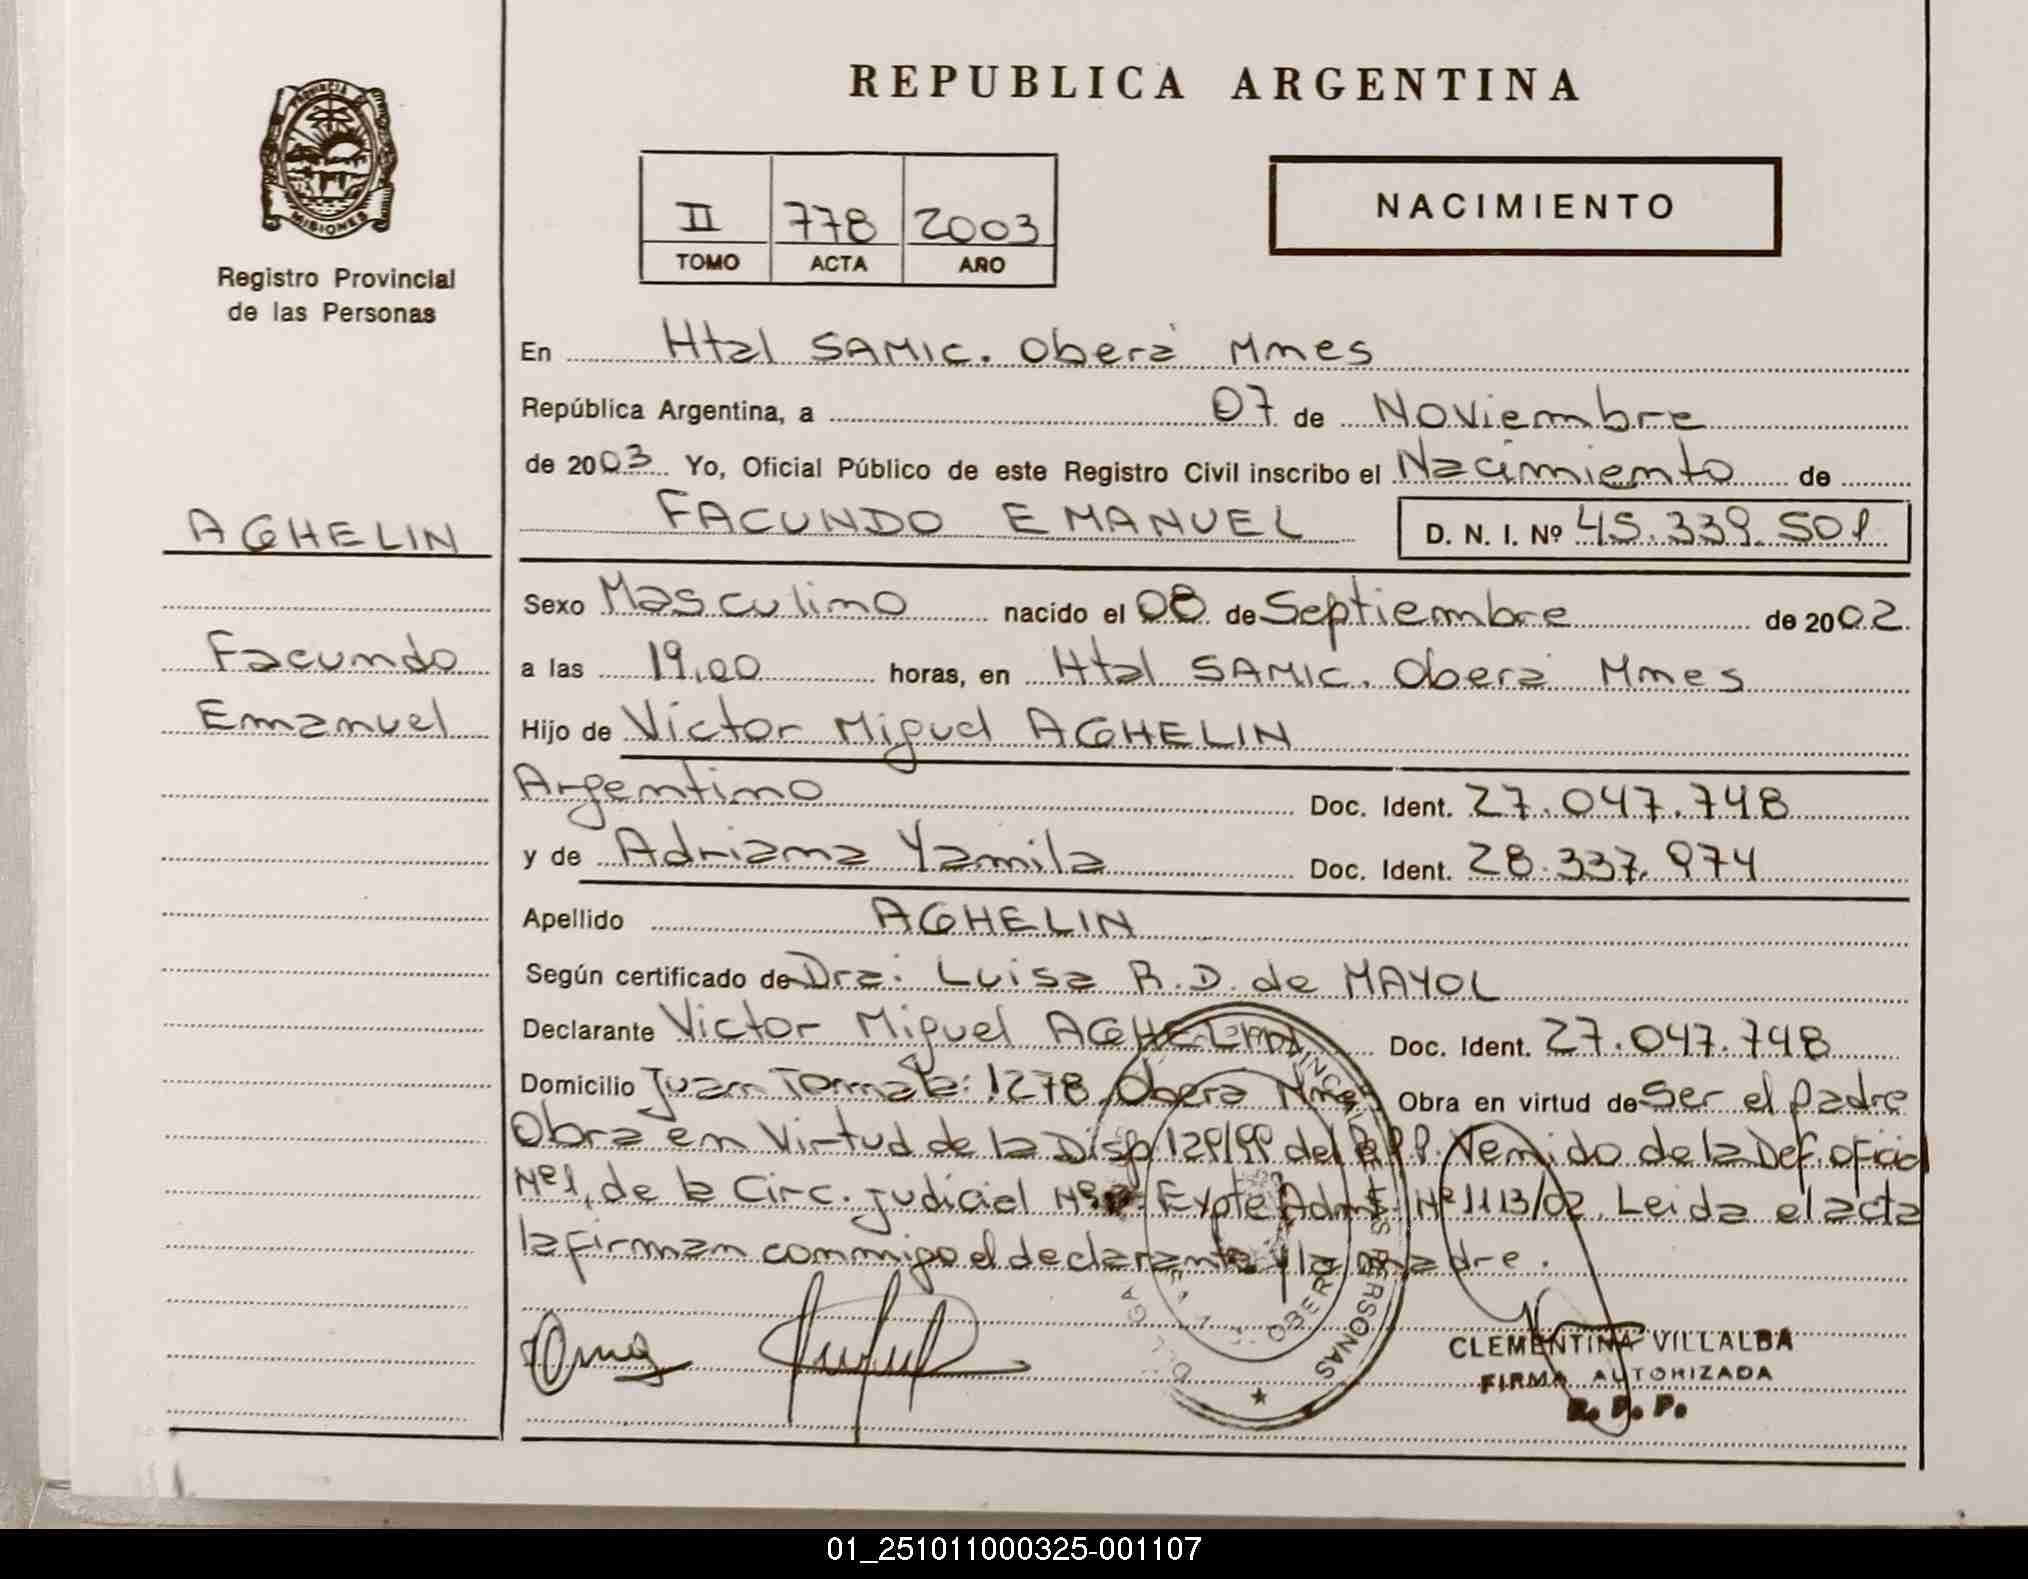 PROVINCIA DE
MISIONES
Registro Provincial
de las Personas
REPUBLICA ARGENTINA
II 778 2003
TOMO ACTA AÑO
NACIMIENTO
En Htal SAMIC. Oberá Mnes
República Argentina, a 07 de Noviembre
de 2003 Yo, Oficial Público de este Registro Civil inscribo el Nacimiento de
AGHELIN
FACUNDO EMANUEL D. N. I. Nº 45.339.501
Sexo Masculino nacido el 08 de Septiembre de 2002
Facundo
a las 19,00 horas, en Htal SAMIC. Oberá Mnes
Emanuel
Hijo de Victor Miguel AGHELIN
Argentino Doc. Ident. 27.047.748
y de Adriana Yamila Doc. Ident. 28.337.974
Apellido AGHELIN
Según certificado de Dra: Luisa R.D. de MAYOL
Declarante Victor Miguel AGHELIN Doc. Ident. 27.047.748
Domicilio Juan 1278 Oberá Mnes Obra en virtud de ser el padre
Obra en Virtud de la Disp 129/99 del R.P.P. Venido de la Def. oficial
Nº1, de la Circ. Judicial Nº Expte Adm. Nº 1113/02. Leida el acta
la firman conmigo el declarante y la madre.
OBERA
PERSONAS
CLEMENTINA VILLALBA
FIRMA AUTORIZADA
R. P. P.
01_251011000325-001107